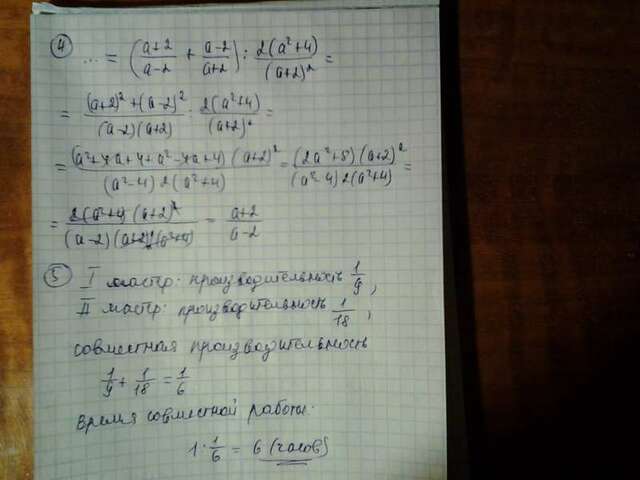 ④ ... = (a+2/a-2 + a-2/a+2) : 2(a²+4)/(a+2)² =
= (a+2)²+(a-2)²/(a-2)(a+2) : 2(a²+4)/(a+2)² =
= (a²+4a+4+a²-4a+4)(a+2)²/(a²-4)2(a²+4) = (2a²+8)(a+2)²/(a²-4)2(a²+4) =
= 2(a²+4)(a+2)²/(a-2)(a+2)2(a²+4) = a+2/a-2
⑤ I мастер: производительность 1/9,
II мастр: производительность 1/18,
совместная производительность
1/9 + 1/18 = 1/6
Время совместной работы:
1 · 1/6 = 6 (часов)